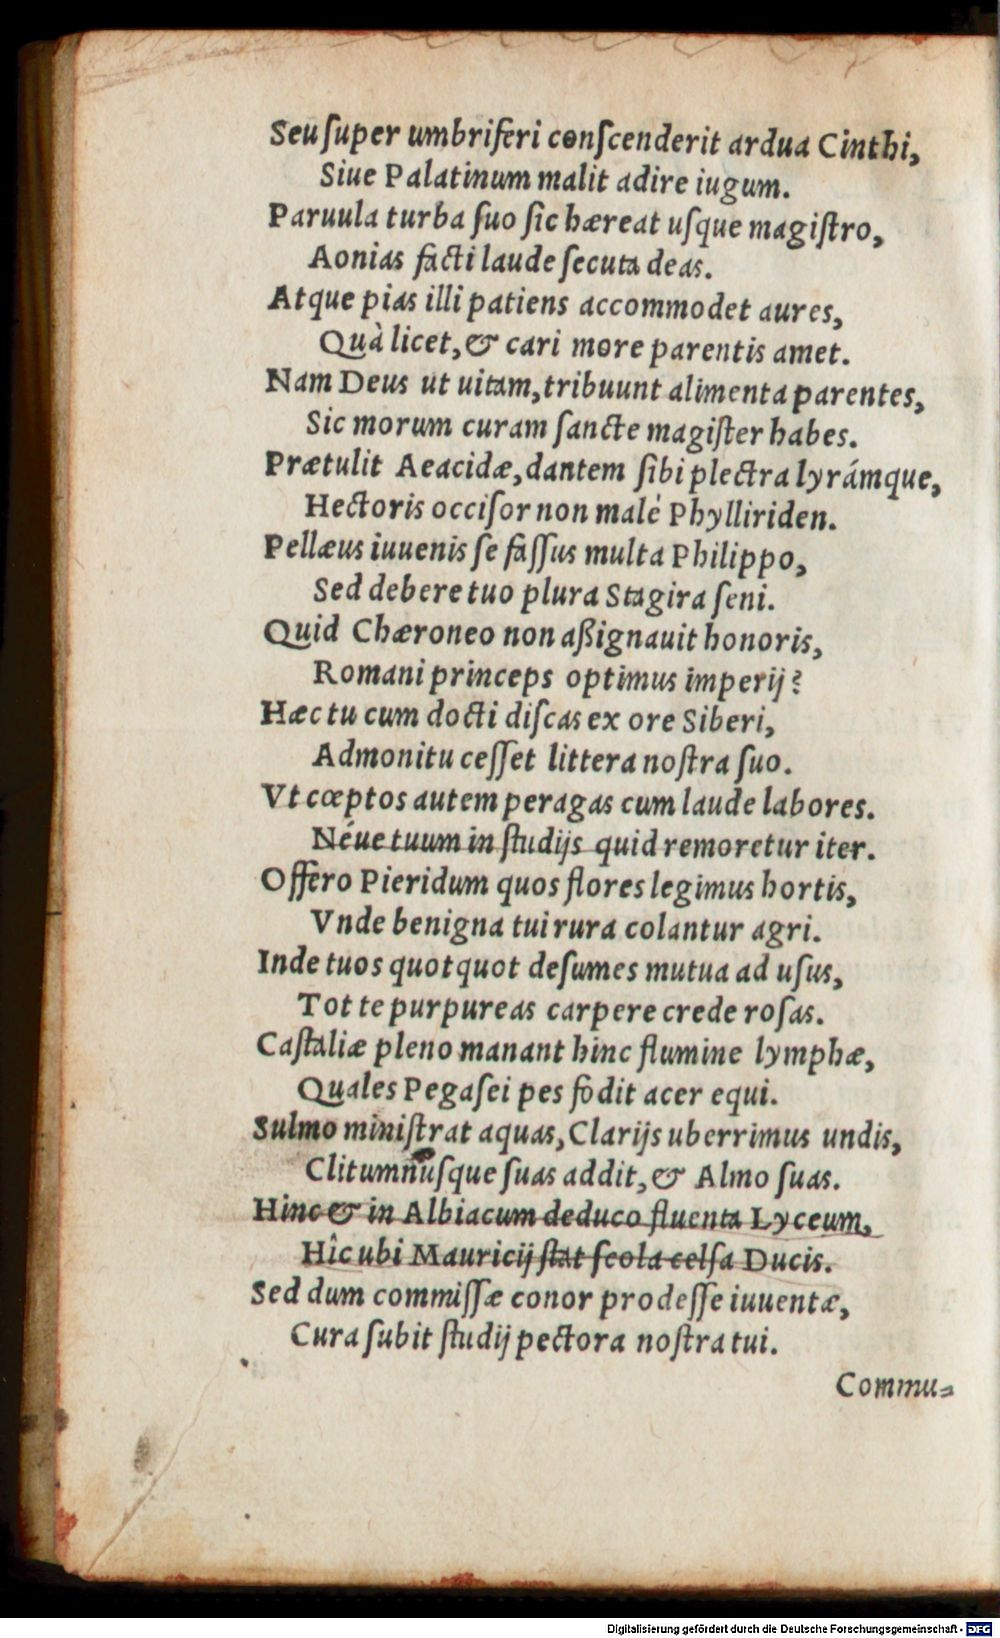 Seu ſuper umbriferi conſcenderit ardua Cinthi,
Siue Palatinum malit adire iugum.
Paruula turba ſuo ſic hæreat uſque magiſtro,
Aonias facti laude ſecuta deas.
Atque pias illi patiens accommodet aures,
Quà licet, & cari more parentis amet.
Nam Deus ut uitam, tribuunt alimenta parentes,
Sic morum curam ſancte magiſter habes.
Prætulit Aeacidæ, dantem ſibi plectra lyrámque,
Hectoris occiſor non malè Phylliriden.
Pellæus iuuenis ſe faſſus multa Philippo,
Sed debere tuo plura Stagira ſeni.
Quid Chæroneo non aßignauit honoris,
Romani princeps optimus imperij?
Hæc tu cum docti diſcas ex ore Siberi,
Admonitu ceſſet littera noſtra ſuo.
Vt cœptos autem peragas cum laude labores.
Néue tuum in ſtudijs quid remoretur iter.
Offero Pieridum quos flores legimus hortis,
Vnde benigna tui rura colantur agri.
Inde tuos quotquot deſumes mutua ad uſus,
Tot te purpureas carpere crede roſas.
Caſtaliæ pleno manant hinc flumine lymphæ,
Quales Pegaſei pes fodit acer equi.
Sulmo miniſtrat aquas, Clarijs uberrimus undis,
Clitumnúſque ſuas addit, & Almo ſuas.
Hinc & in Albiacum deduco fluenta Lyceum,
Hîc ubi Mauricij ſtat ſcola celſa Ducis.
Sed dum commiſſæ conor prodeſſe iuuentæ,
Cura ſubit ſtudij pectora noſtra tui.
Commu=
Digitalisierung gefördert durch die Deutsche Forschungsgemeinschaft - DFG